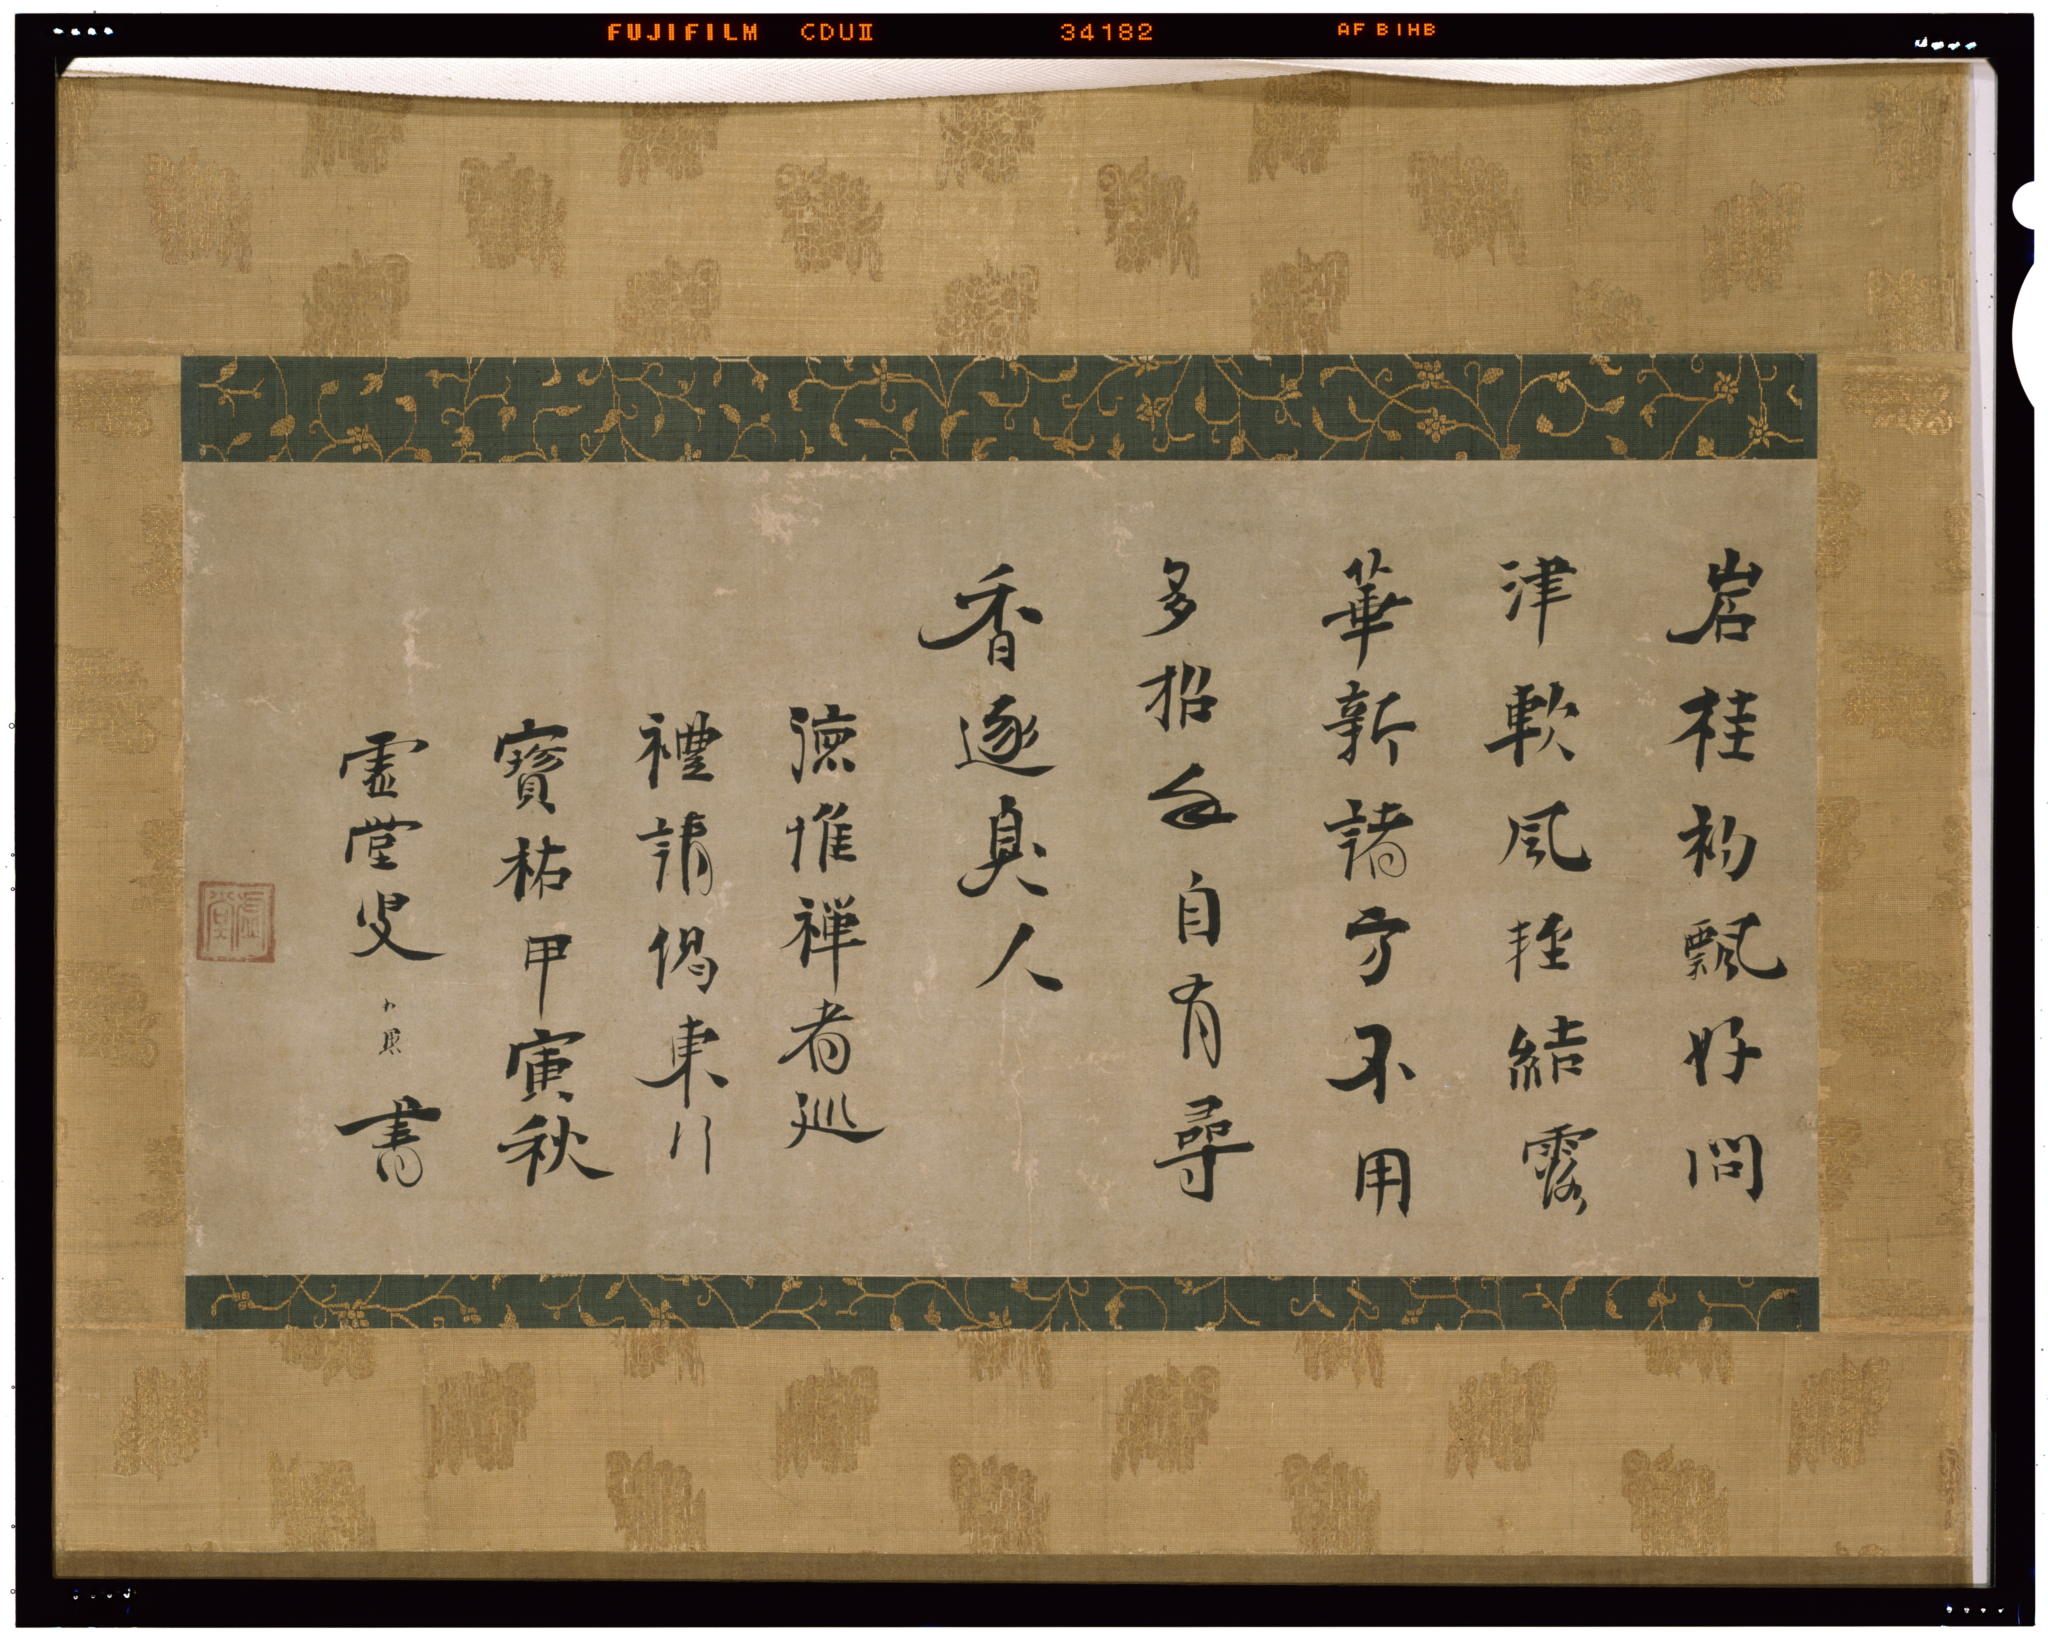 FUJIFILM CDUⅡ 34182 AF BIHB
岩桂初飄好問
津軟風輕結露
華新諸方不用
多招手自有尋
香逐臭人
德惟禪者巡
禮請偈東行
寶祐甲寅秋
虛堂叟 書
虛堂